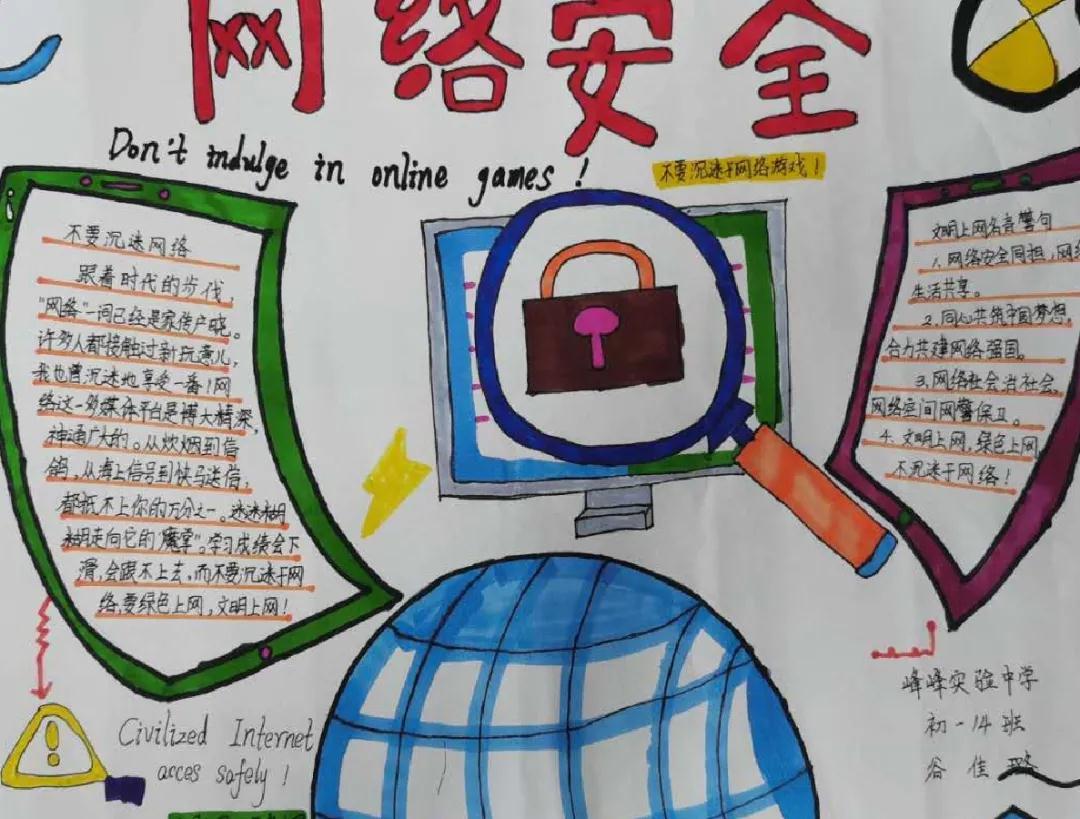 网络安全
Don't indulge in online games!
不要沉迷于网络游戏!
不要沉迷网络
跟着时代的步伐,
"网络"一词已经是家传户晓。
许多人都接触过新玩意儿,
我也曾沉迷地享受一番!网
络这一多媒体平台是博大精深,
神通广大的。从炊烟到信
鸽,从海上信号到快马送信,
都抵不上你的万分之一。迷迷糊
糊走向它的"魔掌"。学习成绩会下
滑,会跟不上去,而不要沉迷于网
络,要绿色上网,文明上网!
文明上网名言警句
1.网络安全同担,网络
生活共享。
2.同心共筑中国梦想,
合力共建网络强国。
3.网络社会治社会,
网络空间网警保卫。
4.文明上网,绿色上网
不沉迷于网络!
Civilized Internet
acces safely!
峰峰实验中学
初一14班
谷佳